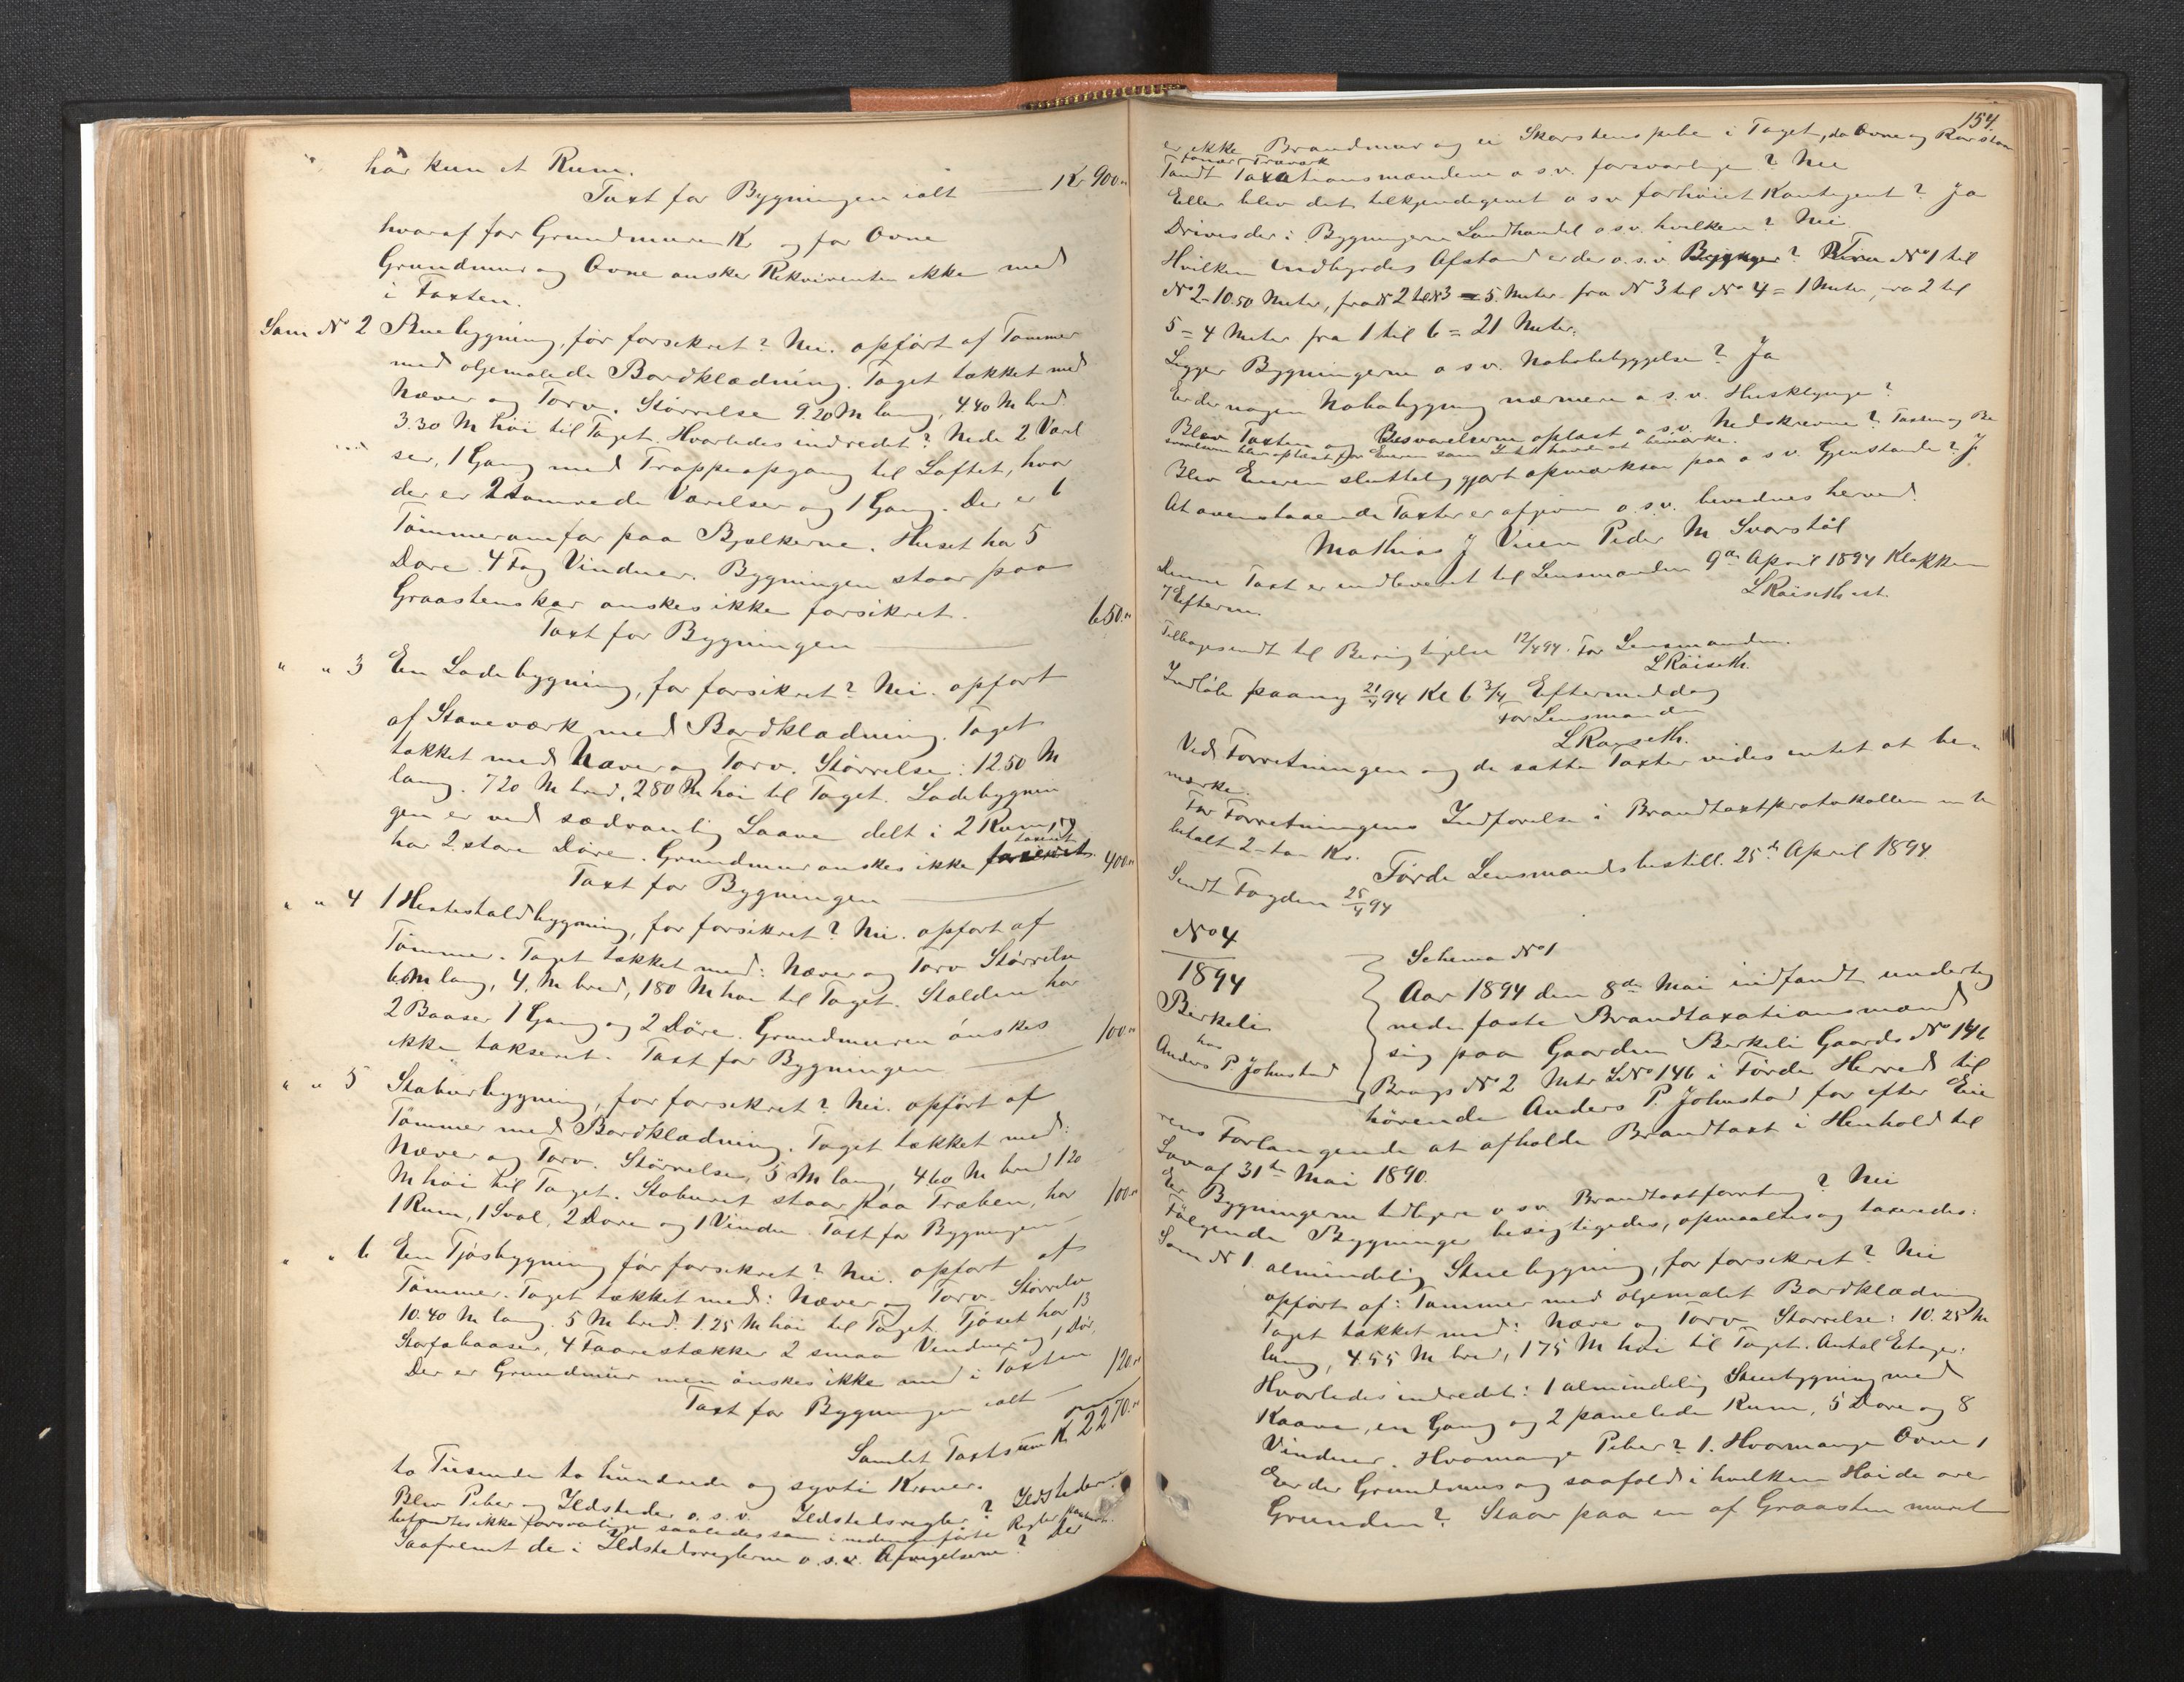 har kun et Rum.
Taxt for Bygningen ialt Kr 900.„
hvoraf for Grundmuren Kr og for Ovne
Grundmur og Ovne ønsker Rekvirenten ikke med
i Taxten.
Som No 2 Stuebygning, før forsikret? Nei. opført af Tømmer
med oljemalede Bordklædning. Taget tækket med
Næver og Torv. Størrelse 9.20 M lang, 4.40 M bred
3.30 M høi til Taget. Hvorledes indredt? Nede 2 Værel
ser, 1 Gang med Trappeopgang til Loftet, hvor
der er 2 tømrede Værelser og 1 Gang. Der er 6
Tømmeromfar paa Bjælkerne. Huset har 5
Døre 4 Fag Vinduer. Bygningen staar paa
Graastenskar ønskes ikke forsikret.
Taxt for Bygningen 650.„
„ „ 3 En Ladebygning, før forsikret? Nei. opført
af Staveværk med Bordklædning. Taget
tækket med Næver og Torv. Størrelse: 12.50 M
lang. 720 M bred, 280 M høi til Taget. Ladebygnin
gen er ved sædvanlig Laave delt i 2 Rum, og
har 2 store Døre. Grundmur ønskes ikke taxeret
Taxt for Bygningen 400.„
„ „ 4 1 Hestestaldbygning, før forsikret? Nei. opført af
Tømmer. Taget tækket med: Næver og Torv Størrelse
6 M lang, 4, M bred, 180 M høi til Taget. Stalden har
2 Baaser 1 Gang og 2 Døre. Grundmuren ønskes
ikke takseret. Taxt for Bygningen 100.„
„ „ 5 Staburbygning, før forsikret? Nei. opført af
Tømmer med Bordklædning. Taget tækket med:
Næver og Torv. Størrelse, 5 M lang, 4.60 M bred 120
M høi til Taget. Staburet staar paa Træben, har
1 Rum, 1 Sval, 2 Døre og 1 Vindu. Taxt for Bygningen 100.„
„ „ 6 En Fjøsbygning før forsikret? Nei. opført af
Tømmer. Taget tækket med: Næver og Torv. Størrelse
10.40 M lang. 5 M bred. 1.25 M høi til Taget Fjøset har 13
Storfebaaser, 4 Faarestækker 2 smaa Vinduer og 1 Dør,
Der er Grundmur men ønskes ikke med i Taxten
Taxt for Bygningen ialt 120.„
Samlet Taxtsum Kr 2270.„
to Tusende to hundrede og sytti Kroner.
Blev Piber og Ildsteder o. s. v. Ildstedsregler? Ildstederne
befandtes ikke forsvarlige saaledes som i nedenanførte Regler
Saafremt de i Ildstedsreglerne o. s. v. Afvigelserne? Der
154.
er ikke Brandmur og ei Skorstenspibe i Taget, da Ovne og Rør
Træværk
Fandt Taxationsmændene o s v. forsvarlige? Nei
Eller blev det tilkjendegivet o s v forhøiet Kontigent? Ja
Drives der i Bygningerne Landhandel o s v. hvilken? Nei
Hvilken indbyrdes Afstand er der o. s. v. No 1 til
No 2 - 10.50 Meter, fra No 2 til No 3 = 5 Meter fra No 3 til No 4 = 1 Meter, fra 2 til
5 = 4 Meter fra 1 til 6 = 21 Meter.
Ligger Bygningerne o s v. Nabobebyggelse? Ja
Er der nogen Nabobygning nærmere o. s. v. Husklynge?
Blev Taxten og Besvarelserne oplæst o. s. v. Nedskrevne? Taxten og Be
svarelserne blev oplæst for Eieren som Intet havde at bemærke.
Blev Eieren sluttelig gjort opmærksom paa o s v. Gjenstande? J
At ovenstaaende Taxter er afgivne o. s. v. bevidnes herved.
Mathias J Vieen Peder M Svorstøl
Denne Taxt er indleveret til Lensmanden 9de April 1894 Klokken
7 Efterm. L Røiseth
Tilbagesendt til Berigtigelse 12/4 94. For Lensmanden.
L Røiseth.
Indløb paany 21/4 94 Kl 6 3/4 Eftermiddag
For Lensmanden
L Røiseth.
Ved Forretningen og de satte Taxter vides intet at be-
mærke.
For Forretningens Indførelse i Brandtaxtprotokollen er
betalt 2 - to Kr.
Førde Lensmandsbestill. 25de April 1894.
Sendt Fogden 25/4 94
No 4
1894
Birkeli
hos
Anders P. Johnstad
Schema No 1
Aar 1894 den 8de Mai indfandt underteg
nede faste Brandtaxationsmænd
sig paa Gaarden Birkeli Gaards No 146
Brugs No 2 Mtr LNo 146 i Førde Herred til
hørende Anders P. Johnstad for efter Eie
rens Forlangende at afholde Brandtaxt i Henhold til
Lov af 31te Mai 1890.
Er Bygningerne tidligere o s v Brandtaxtforretning? Nei
Følgende Bygninger besigtigedes, opmaaltes og taxeredes:
Som No 1. almindelig Stuebygning, før forsikret? Nei
opført af: Tømmer med oljemalet Bordklædning
Taget tækket med: Næver og Torv Størrelse: 10.25 M
lang, 4.55 M bred, 175 M høi til Taget. Antal Etager:
Hvorledes indredet: 1 almindelig Stuebygning med
Kaave, en Gang og 2 panelede Rum, 5 Døre og 8
Vinduer. Hvormange Piber? 1. Hvormange Ovne 1
Er der Grundmur og saafald i hvilken Høide over
Grunden? Staar paa en af Graasten muret